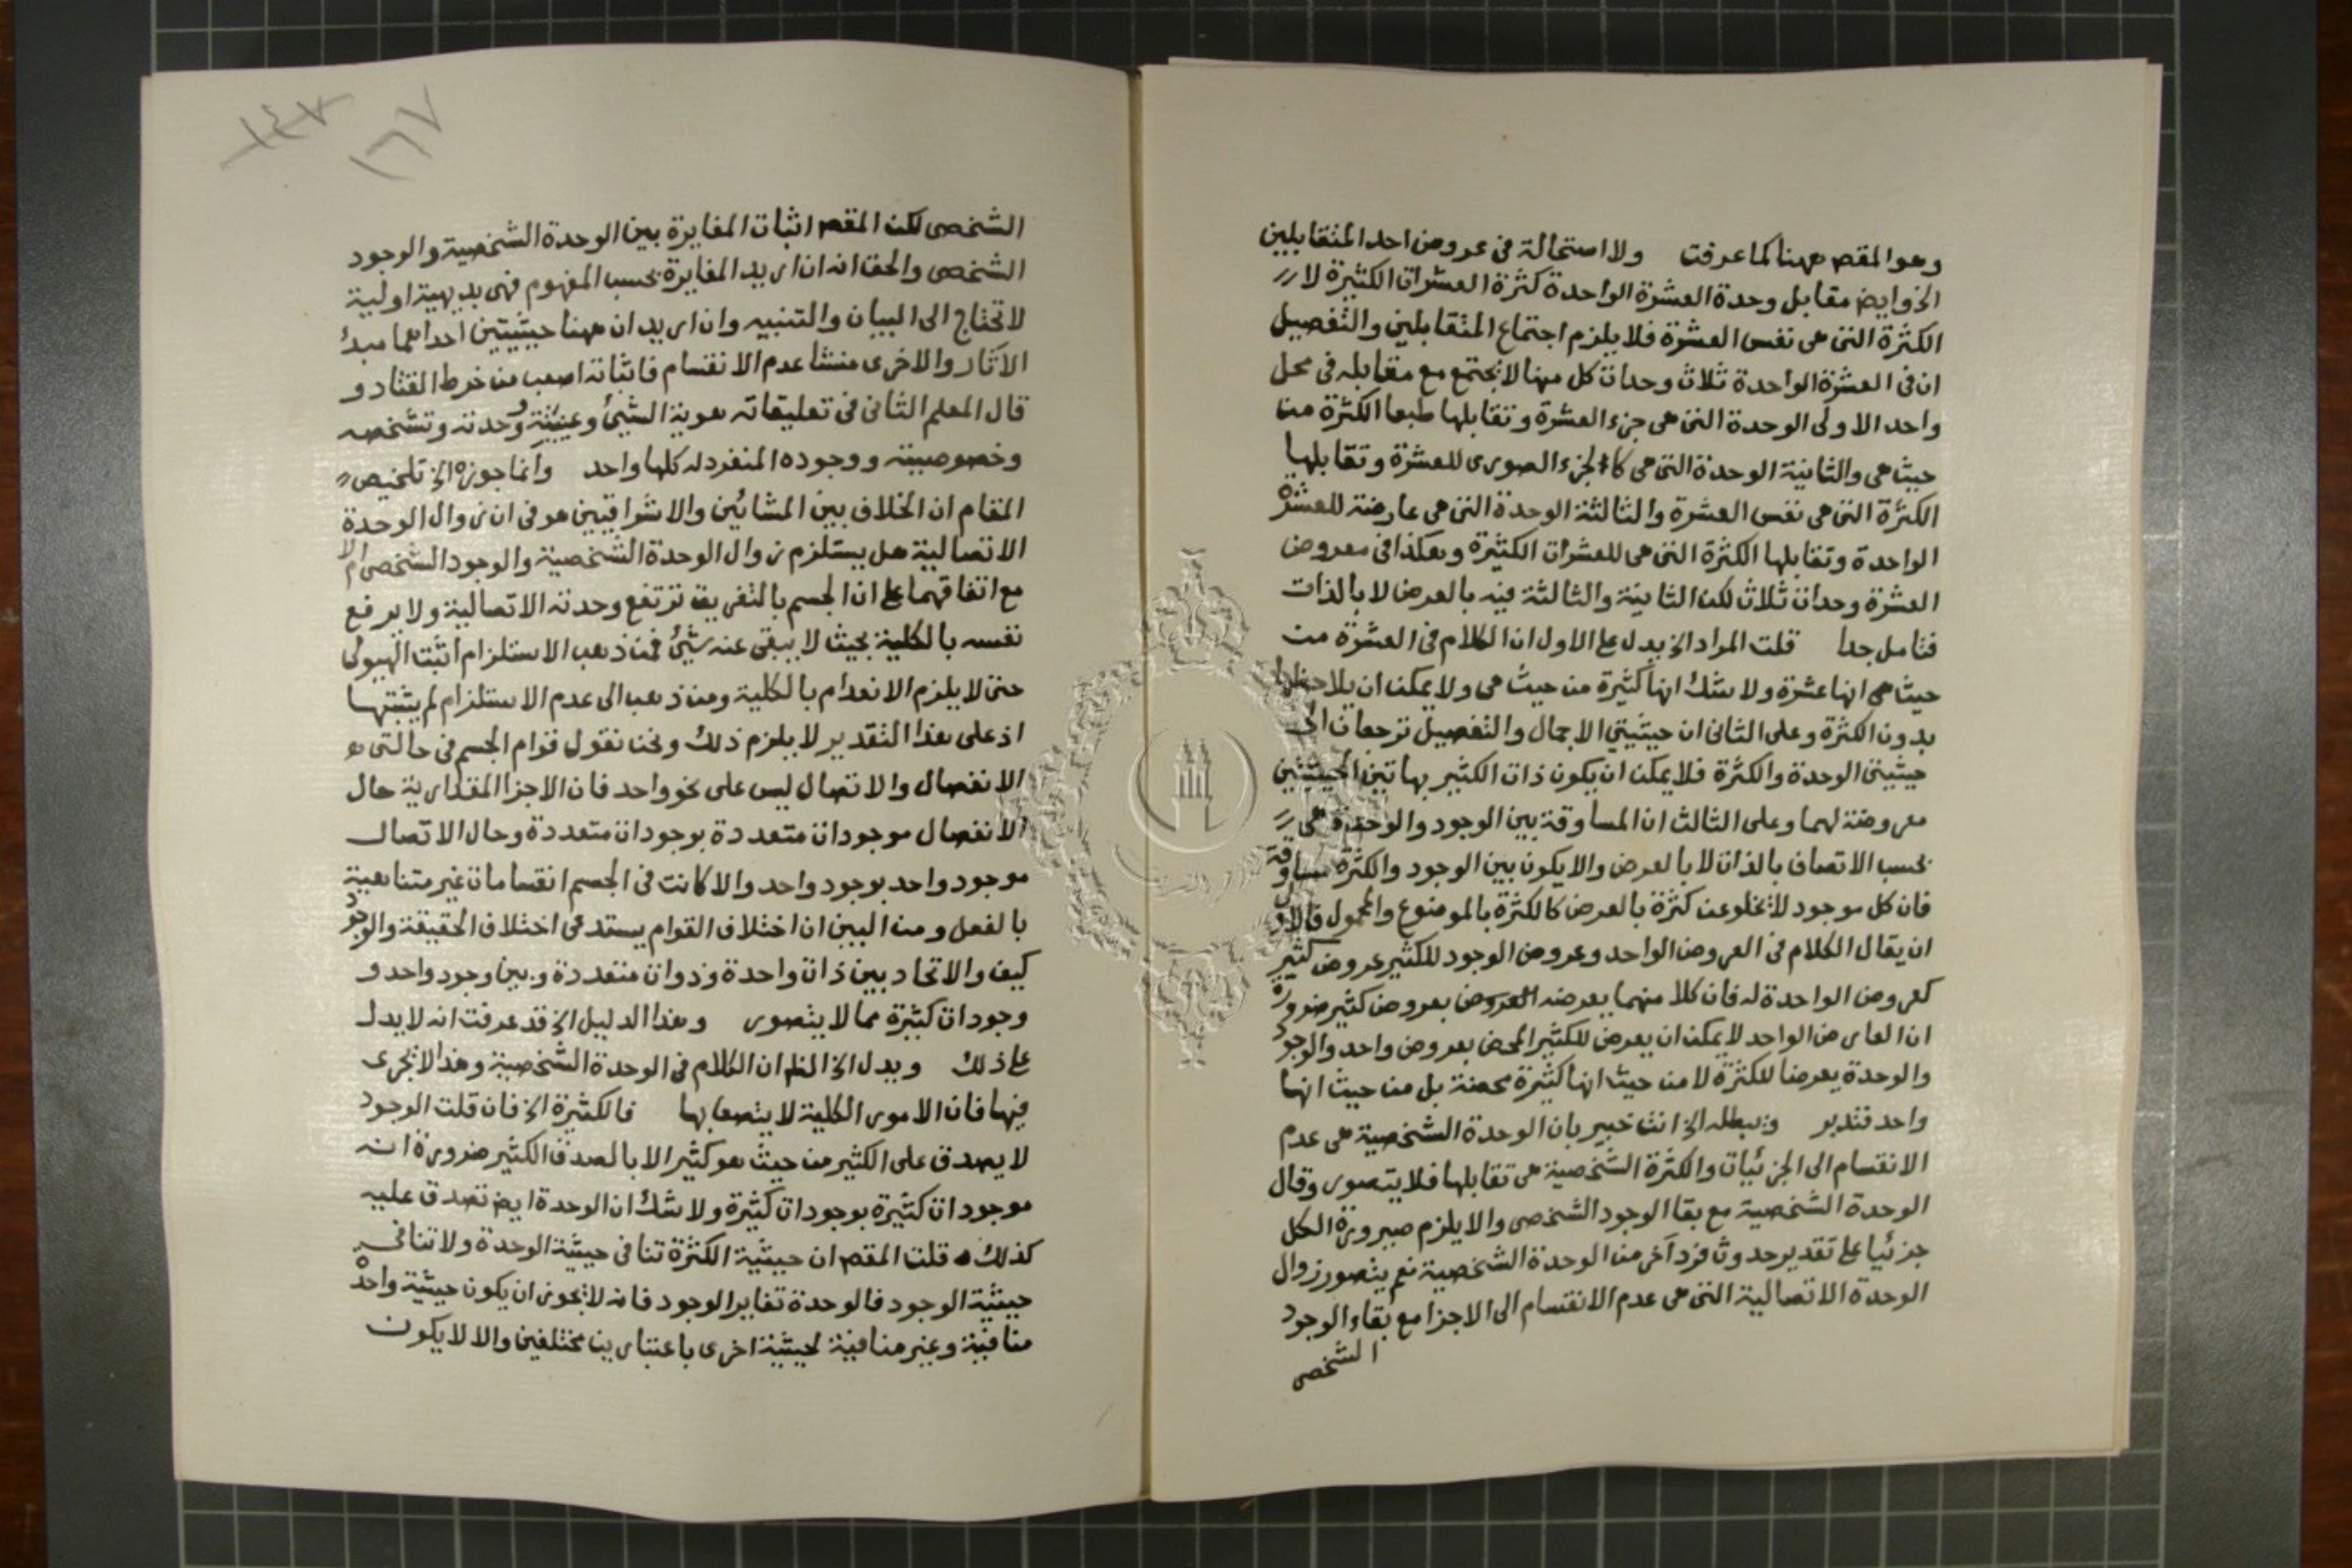 وهو المقصه ههنا كما عرفت ولا استحالة فى عروض احد المتقابلين
الخ وايضه مقابل وحدة العشرة الواحدة كثرة العشرات الكثيرة لا
الكثرة التى هى نفس العشرة فلا يلزم اجتماع المتقابلين والتفصيل
ان فى العشرة الواحدة ثلاث وحدات كل منها لا يجتمع مع مقابله فى محل
واحد الاولى الوحدة التى هى جزء العشرة وتقابلها طبعا الكثرة من
حيث هى والثانية الوحدة التى هى كالجزء الصورى للعشرة وتقابلها
الكثرة التى هى نفس العشرة والثالثة الوحدة التى هى عارضة للعشرة
الواحدة وتقابلها الكثرة التى هى للعشرات الكثيرة وهكذا فى معروض
العشرة وحدات ثلاث لكن الثانية والثالثة فيه بالعرض لا بالذات
فتامل جدا قلت المراد الخ يدل على الاول ان الكلام فى العشرة من
حيث هى انها عشرة ولا شك انها كثيرة من حيث هى ولا يمكن ان يلاحظها
بدون الكثرة وعلى الثانى ان حيثيتي الاجمال والتفصيل ترجعان الى
حيثيتى الوحدة والكثرة فلا يمكن ان يكون ذات الكثير بهاتين الحيثيتين
معروضة لهما وعلى الثالث ان المساوقة بين الوجود والوحدة هى
بحسب الاتصاف بالذات لا بالعرض والا يكون بين الوجود والكثرة مساوقة
فان كل موجود لا يخلو عن كثرة بالعرض كالكثرة بالموضوع والمحمول فالاول
ان يقال الكلام فى العروض الواحد وعروض الوجود للكثير عروض كثير
كعروض الواحدة له فان كلا منهما يعرضه العروض بعروض كثير ضرورة
ان العارض الواحد لا يمكن ان يعرض للكثير المحض بعروض واحد والوجود
والوحدة يعرضا للكثرة لا من حيث انها كثيرة محضة بل من حيث انها
واحد فتدبر ويبطله الخ انت خبير بان الوحدة الشخصية هى عدم
الانقسام الى الجزئيات والكثرة الشخصية هى تقابلها فلا يتصور وقال
الوحدة الشخصية مع بقا الوجود الشخصى والا يلزم صيرورة الكل
جزئيا على تقدير حدوث فرد آخر من الوحدة الشخصية نعم يتصور زوال
الوحدة الاتصالية التى هى عدم الانقسام الى الاجزا مع بقاء الوجود
الشخصى
١٤٧
١٦٧
الشخصى لكن المقصه اثبات المغايرة بين الوحدة الشخصية والوجود
الشخصى والحق انه ان اريد المغايرة بحسب المفهوم فهى بديهية اولية
لا تحتاج الى البيان والتنبيه وان اريد ان ههنا حيثيتين احداهما مبدئ
الآثار والاخرى منشا عدم الانقسام فاثباته اصعب من خرط القتاد و
قال المعلم الثانى فى تعليقاته هوية الشيئ وعينيته ووحدته وتشخصه
وخصوصيته ووجوده المنفرد له كلها واحد وانما جوزه الخ تلخيص
المقام ان الخلاف بين المشائين والاشراقيين هو فى ان زوال الوحدة
الاتصالية هل يستلزم زوال الوحدة الشخصية والوجود الشخصى ام لا
مع اتفاقهما على ان الجسم بالتفريق ترتفع وحدته الاتصالية ولا يرفع
نفسه بالكلية بحيث لا يبقى عنه شيئ فمن ذهب الاستلزام اثبت الهيولى
حتى لا يلزم الانعدام بالكلية ومن ذهب الى عدم الاستلزام لم يثبتها
اذ على هذا التقدير لا يلزم ذلك ونحن نقول قوام الجسم فى حالتى
الانفصال والاتصال ليس على نحو واحد فان الاجزا المقدارية حال
الانفصال موجودات متعددة بوجودات متعددة وحال الاتصال
موجود واحد بوجود واحد والا كانت فى الجسم انقسامات غير متناهية
بالفعل ومن البين ان اختلاف القوام يستدعى اختلاف الحقيقة والوجود
كيف والاتحاد بين ذات واحدة وذوات متعددة وبين وجود واحد و
وجودات كثيرة مما لا يتصور وهذا الدليل الخ قد عرفت انه لا يدل
على ذلك ويدل الخ الظه ان الكلام فى الوحدة الشخصية وهذا لا يجرى
فيها فان الامور الكلية لا يتصف بها فالكثيرة الخ فان قلت الوجود
لا يصدق على الكثير من حيث هو كثير الا بالصدق الكثير ضرورة انه
موجودات كثيرة بوجودات كثيرة ولا شك ان الوحدة ايضه تصدق عليه
كذلك قلت المقصه ان حيثية الكثرة تنافى حيثية الوحدة ولا تنافى
حيثية الوجود فالوحدة تغاير الوجود فانه لا يجوز ان يكون حيثية واحدة
منافية وغير منافية لحيثية اخرى باعتبارين مختلفين والا لا يكون